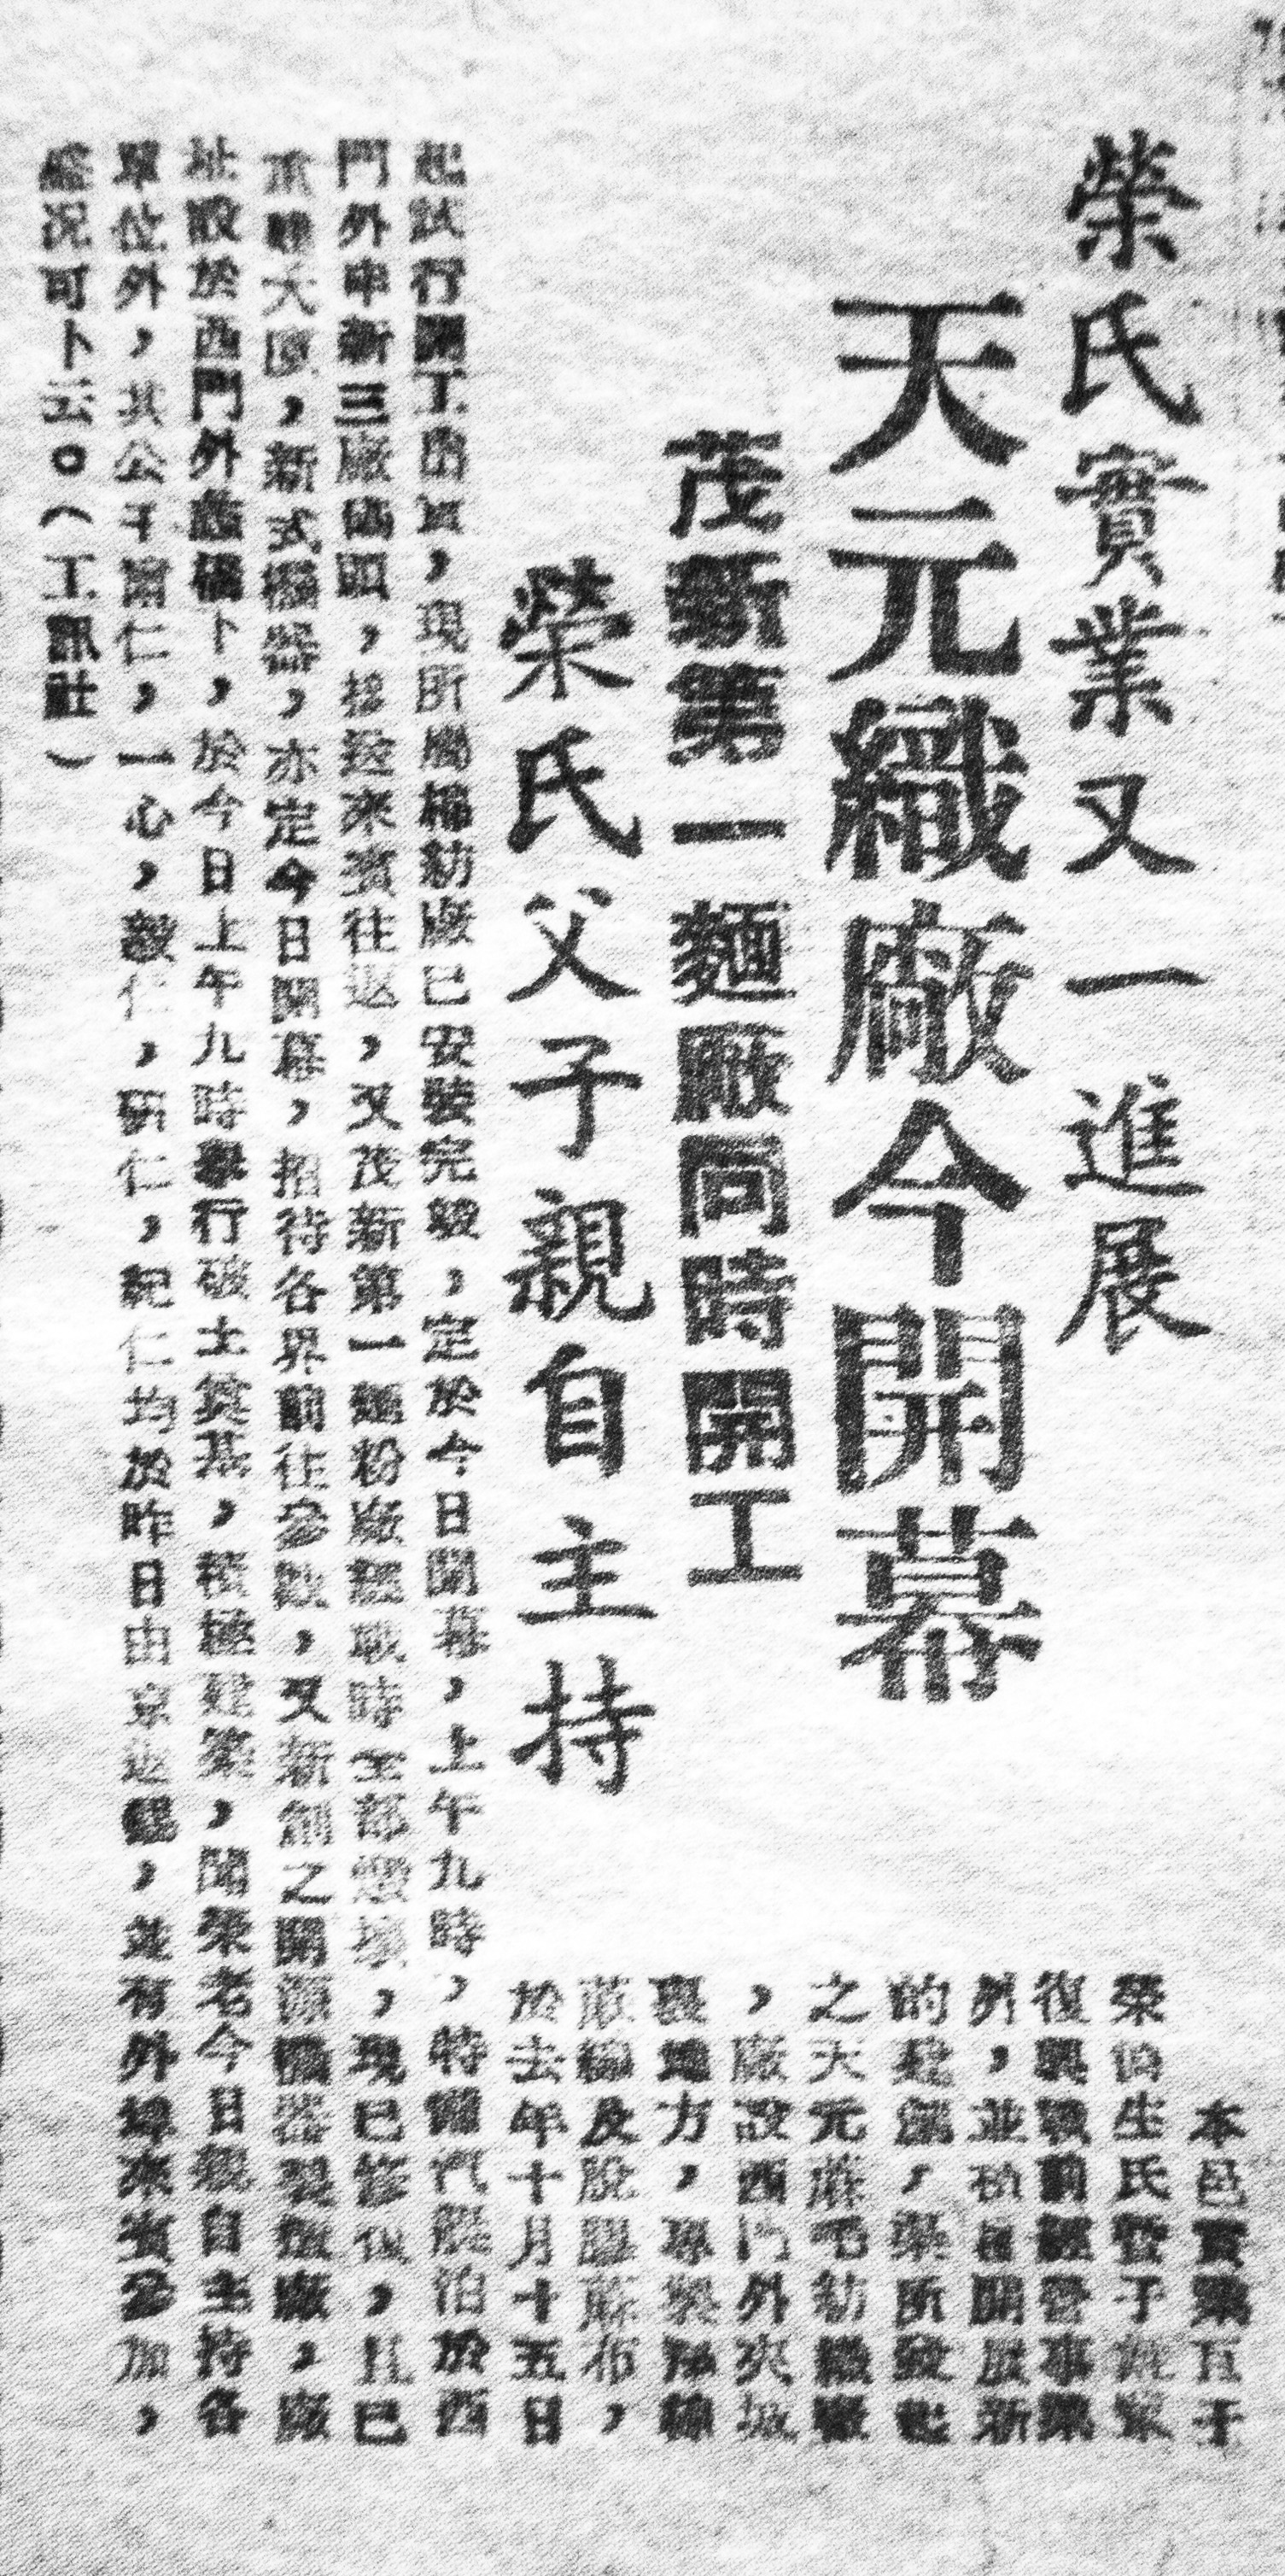 榮氏實業又一進展
天元織廠今開幕
茂新第一麵廠同時開工
榮氏父子親自主持
本邑實業巨子
榮伯生氏暨子
復興戰前經營事業
外，並積極開展新
的建樹，榮所發起
之天元麻毛紡織廠
，廠設西門外夾城
裏地方，專製
麻綿及脫膠麻布，
於去年十月十五日
起試行開工出貨，現所屬棉紡廠已安裝完竣，定於今日開幕，上午九時，特備汽艇泊於西
門外申新三廠碼頭，接送來賓往返，又茂新第一麵粉廠經戰時全部燬壞，現已修復，且已
重建大廈，新式機器，亦定今日開幕，招待各界前往參觀，又新創之開源機器製造廠，廠
址設於西門外蠡橋卜，於今日上午九時舉行破土奠基，積極建築，聞榮老今日親自主持各
單位外，其公子爾仁，一心，毅仁，研仁，紀仁均於昨日由京返錫，並有外埠來賓參加，
盛况可卜云。（工訊社）